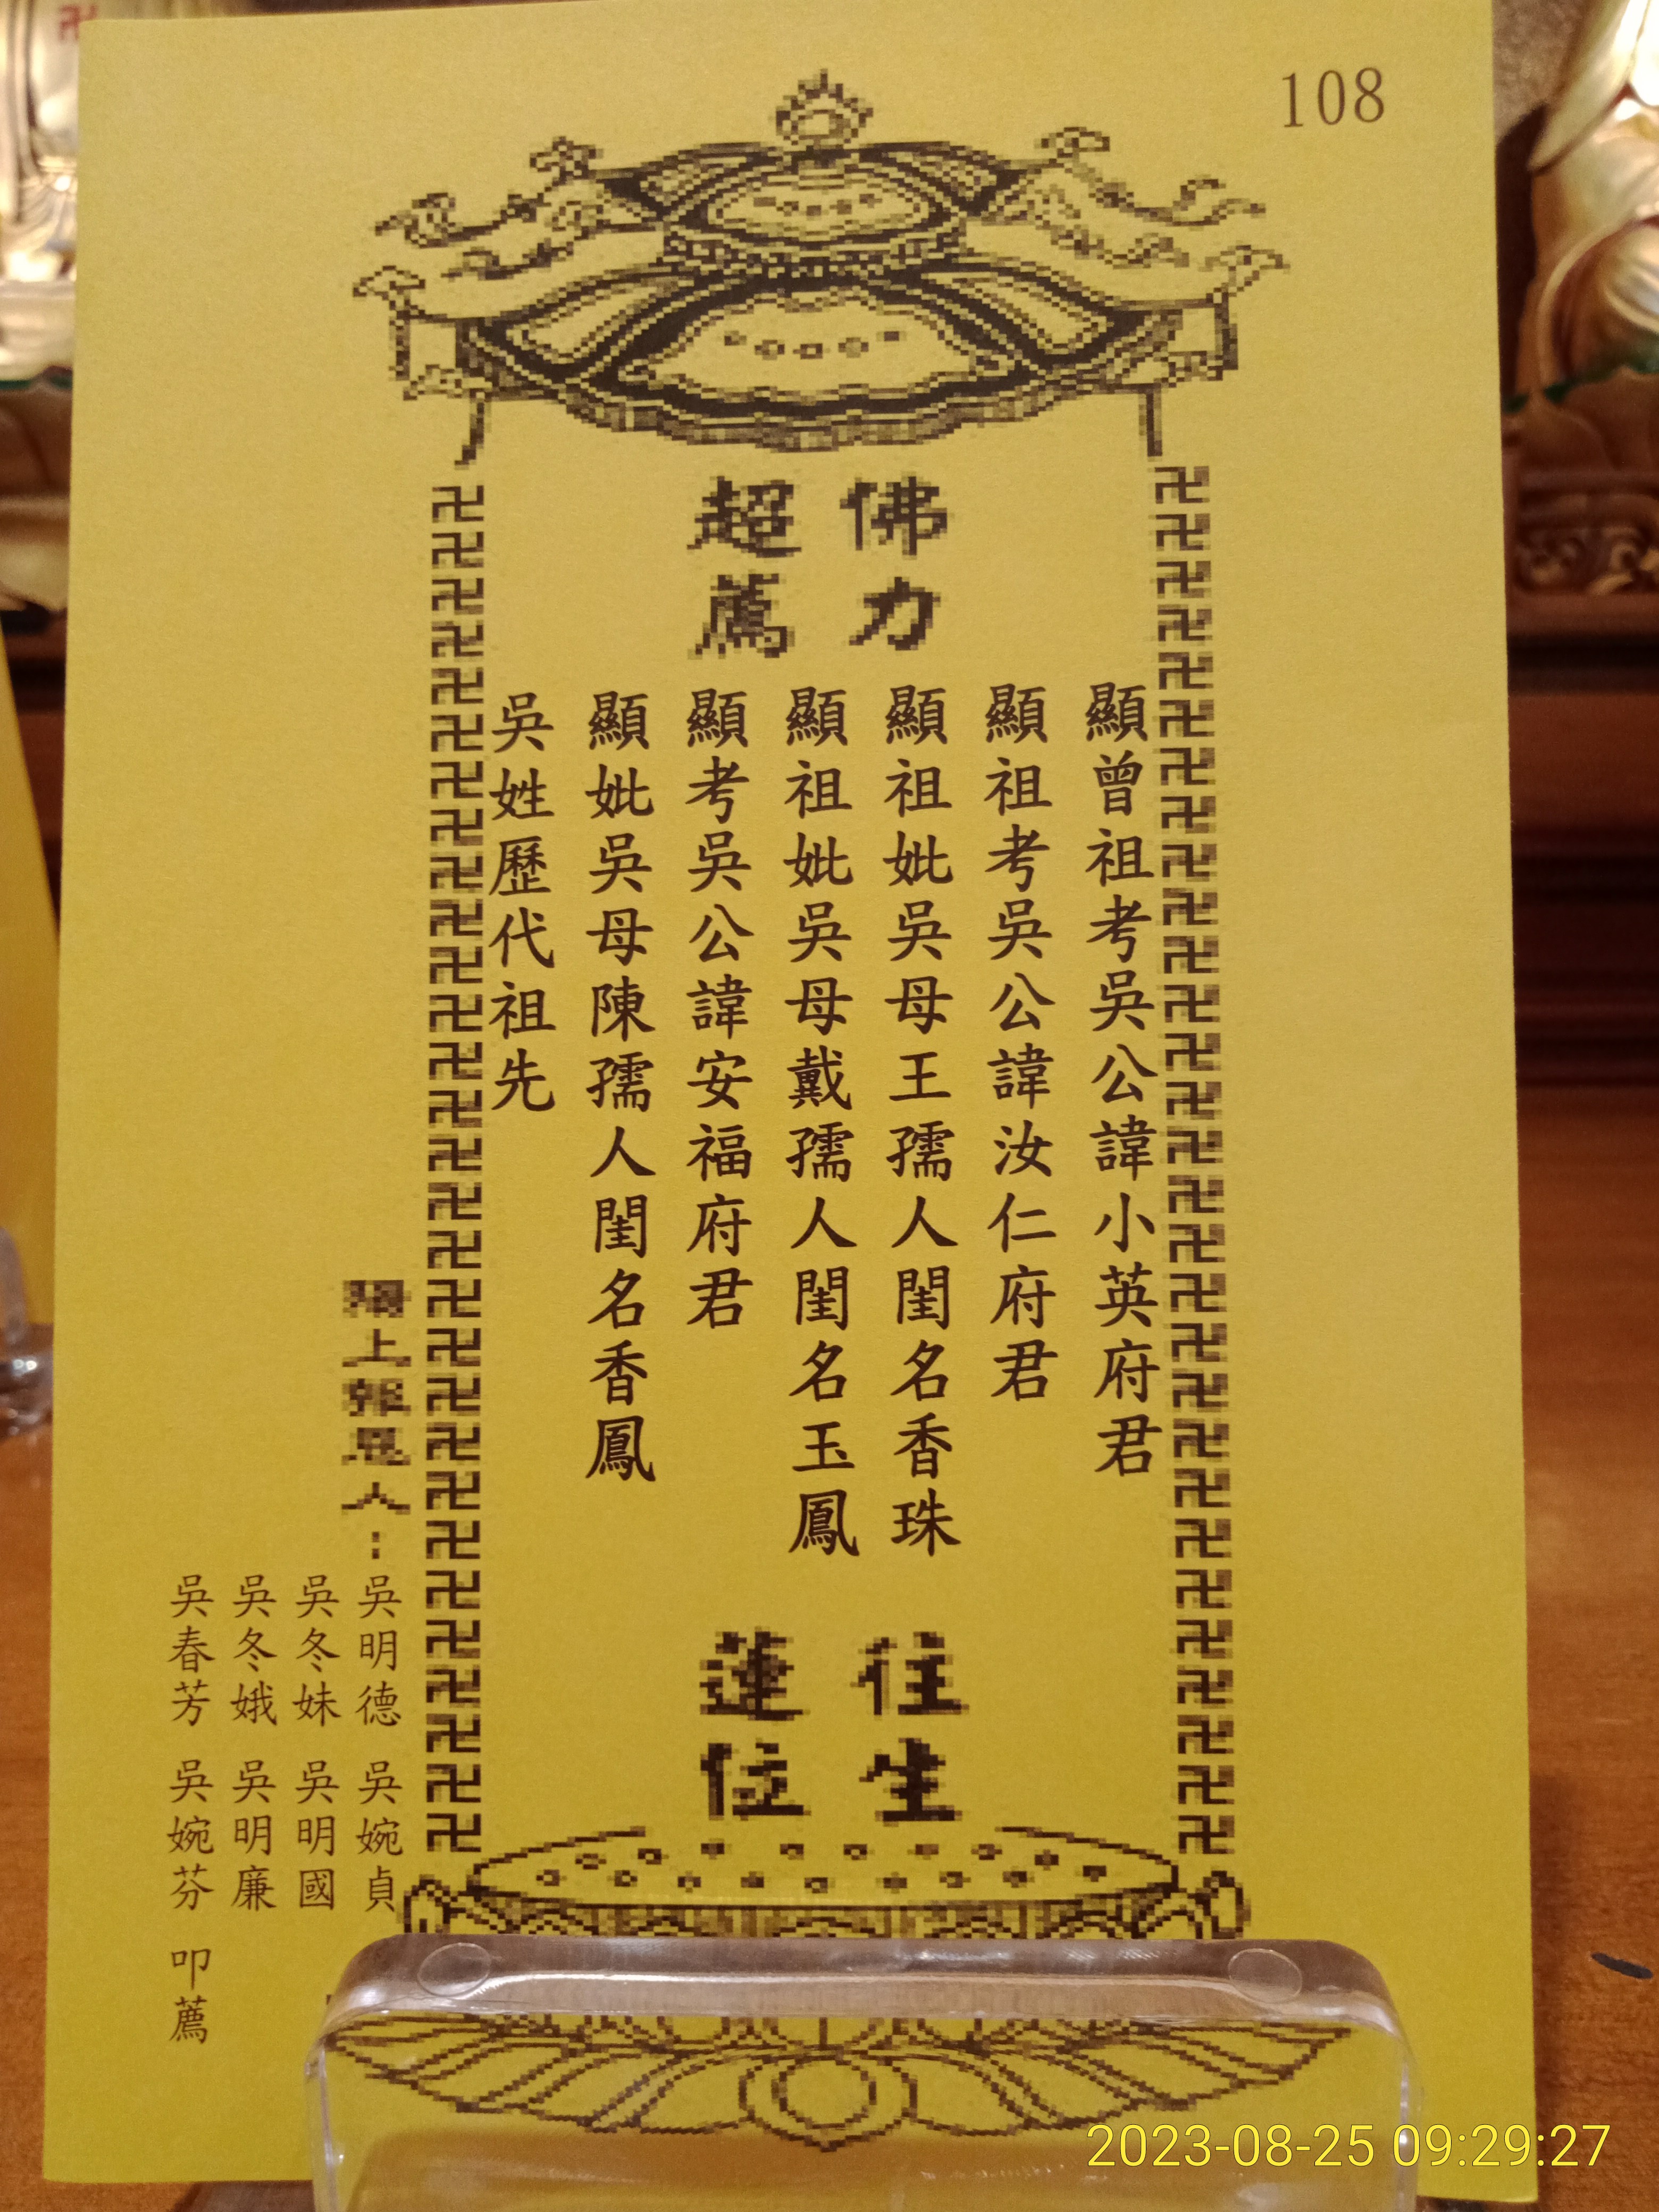 108
佛力
超薦
顯曾祖考吳公諱小英府君
顯祖考吳公諱汝仁府君
顯祖妣吳母王孺人閨名香珠
顯祖妣吳母戴孺人閨名玉鳳
顯考吳公諱安福府君
顯妣吳母陳孺人閨名香鳳
吳姓歷代祖先
往生
蓮位
陽上報恩人：
吳明德 吳婉貞
吳冬妹 吳明國
吳冬娥 吳明廉
吳春芳 吳婉芬 叩薦
2023-08-25 09:29:27